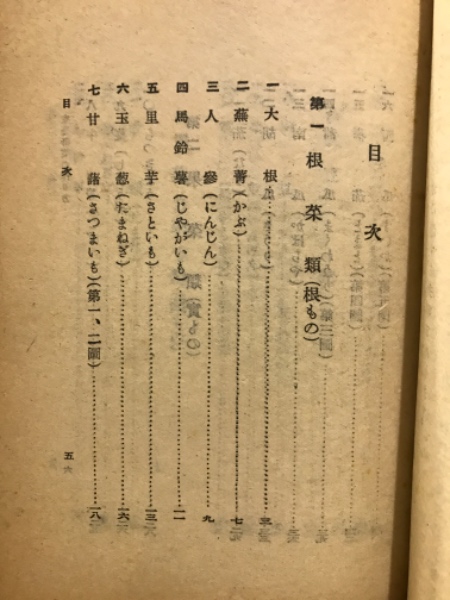 目次
第一 根菜類(根もの)
一 大根……三
二 蕪菁(かぶ)……七
三 人參(にんじん)……九
四 馬鈴薯(じやがいも)……一一
五 里芋(さといも)……一三
六 玉葱(たまねぎ)……一六
七 甘藷(さつまいも)(第一、二圖)……一八
目次